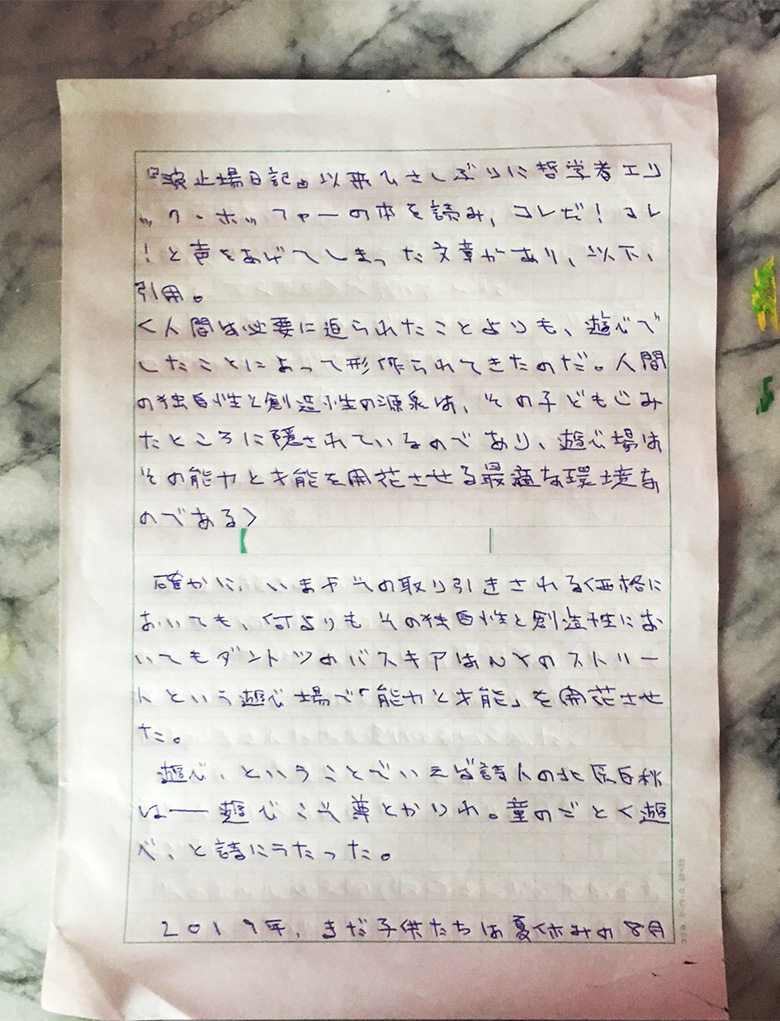 『波止場日記』以来ひさしぶりに哲学者エリ
ック・ホッファーの本を読み、コレだ！コレ
！と声をあげてしまった文章があり、以下、
引用。
＜人間は必要に迫られたことよりも、遊びで
したことによって形作られてきたのだ。人間
の独自性と創造性の源泉は、その子どもじみ
たところに隠されているのであり、遊び場は
その能力と才能を開花させる最適な環境な
のである＞
確かに、いまやその取り引きされる価格に
おいても、何よりもその独自性と創造性にお
いてもダントツのバスキアはNYのストリー
トという遊び場で「能力と才能」を開花させ
た。
遊び、ということでいえば詩人の北原白秋
は――遊びこそ尊とかりれ。童のごとく遊
べ、と詩にうたった。
2019年、まだ子供たちは夏休みの8月